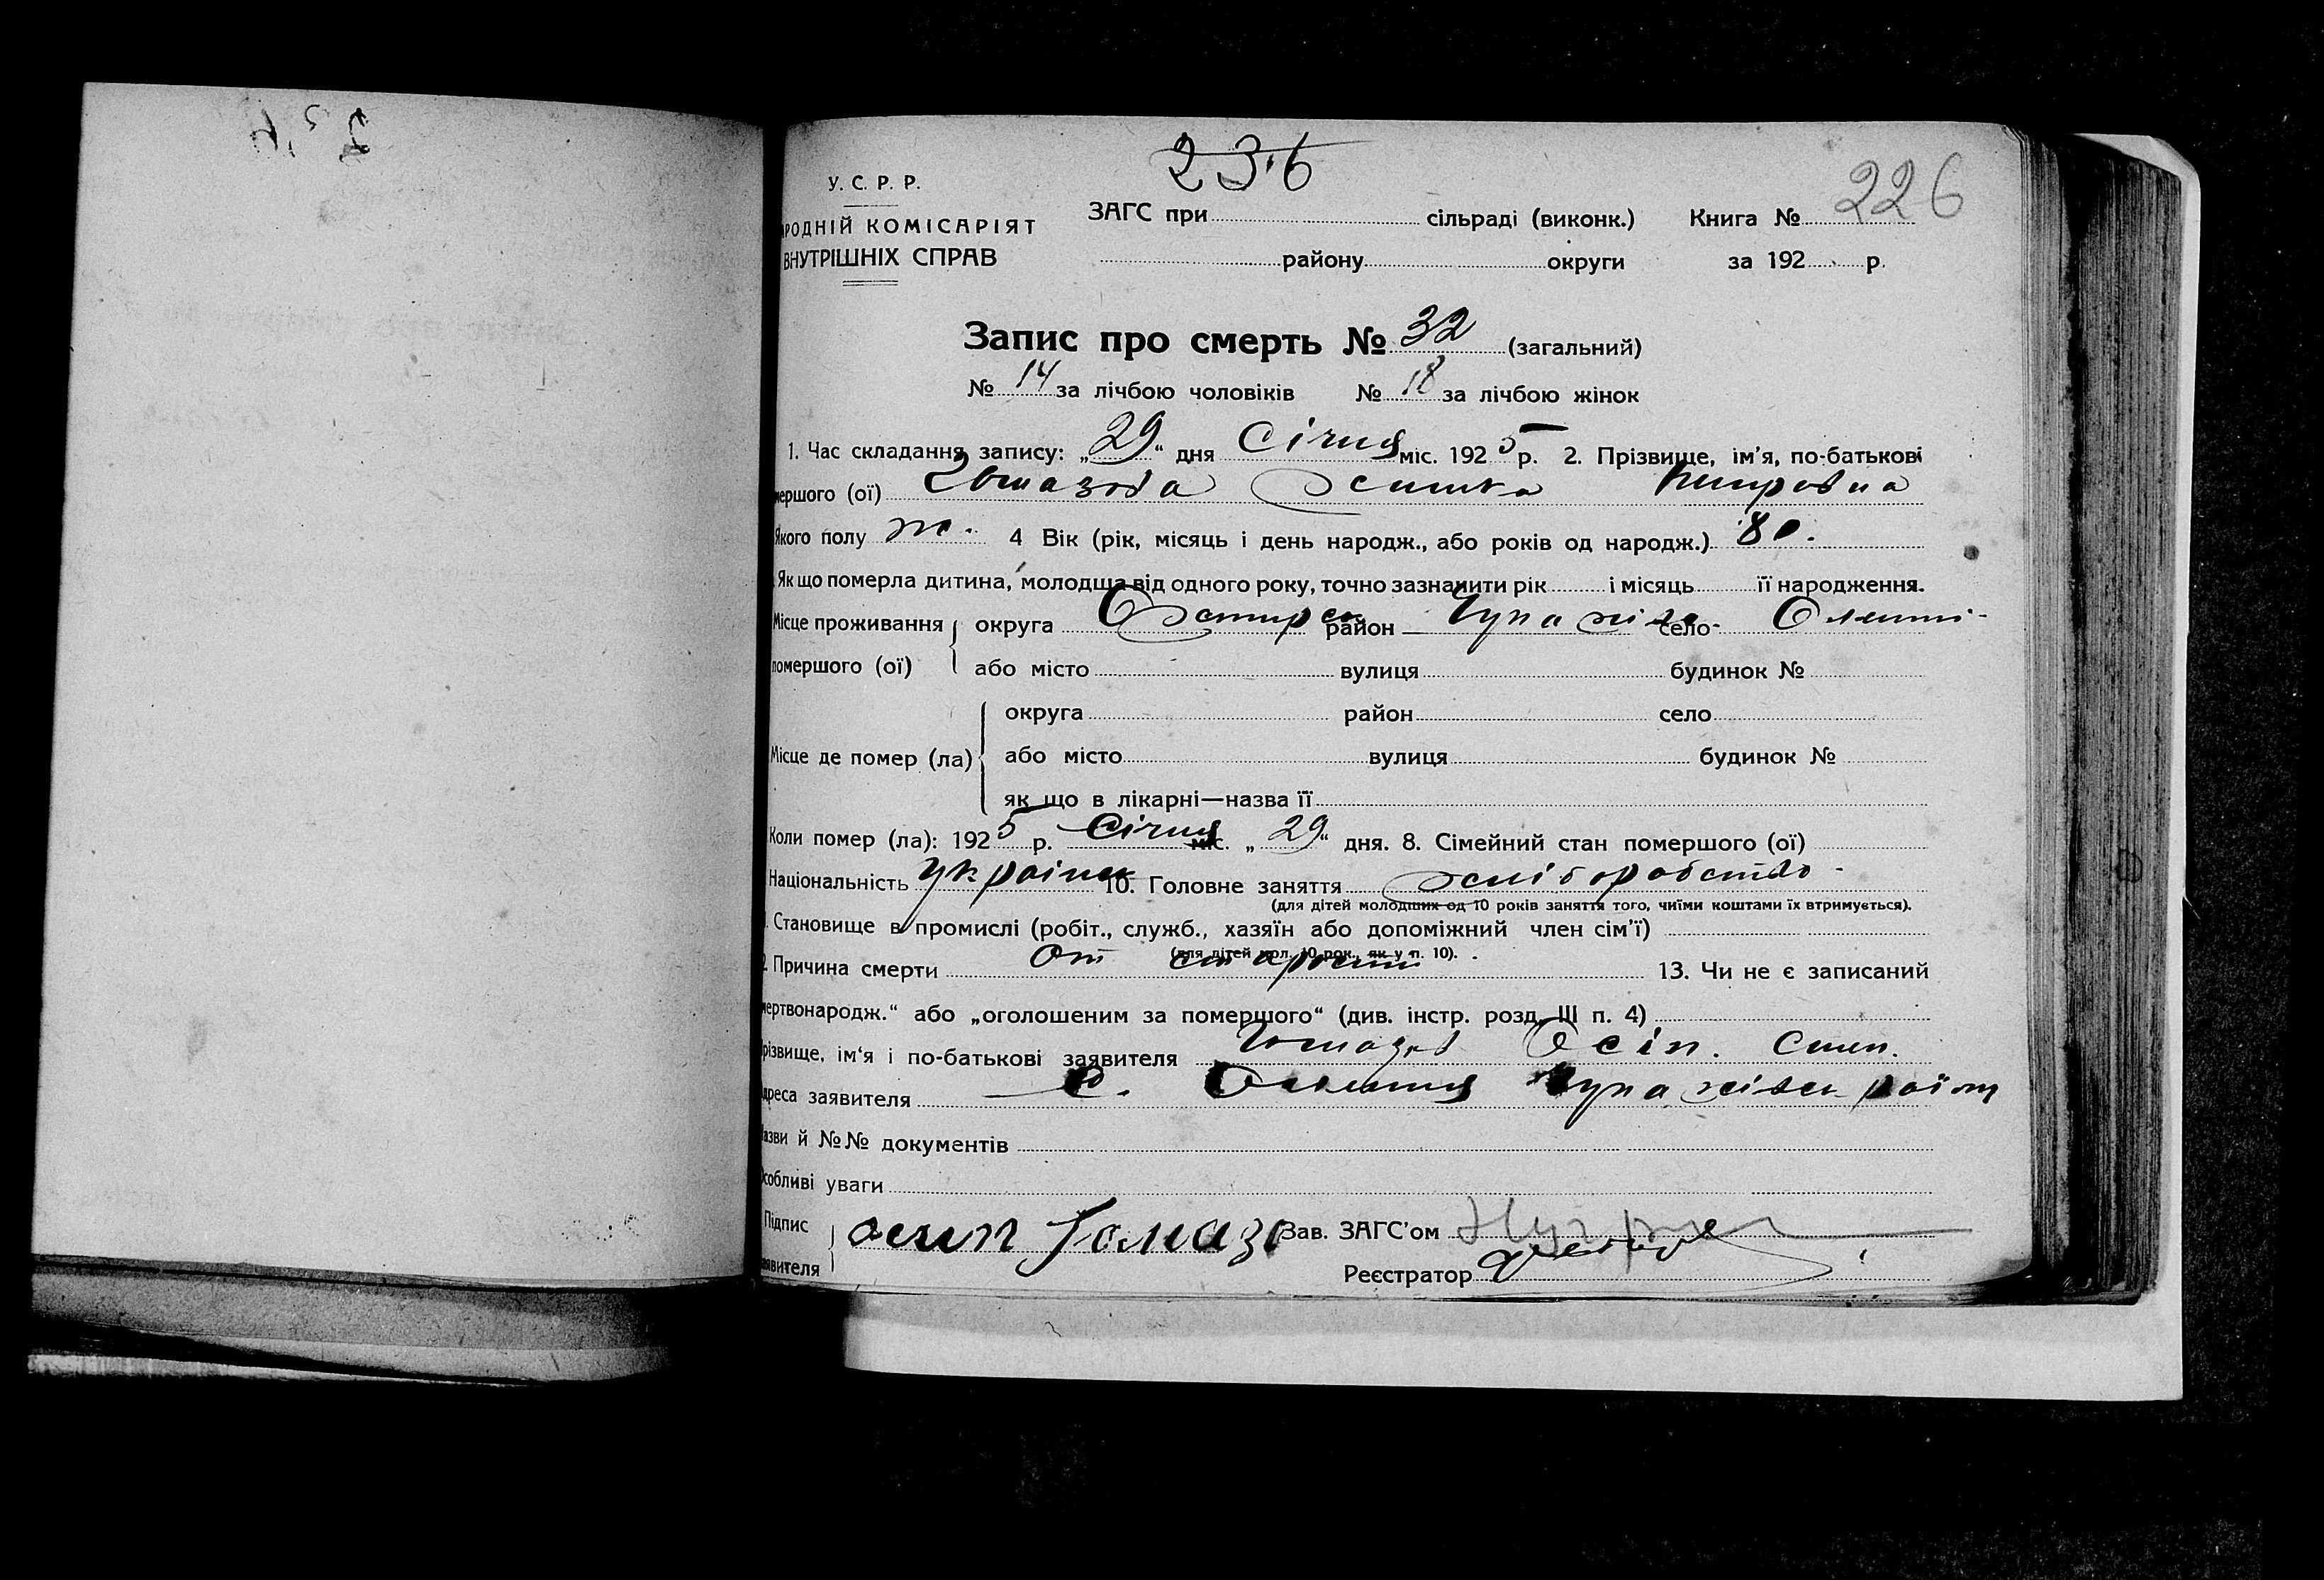 236
226
У. С. Р. Р.
РОДНІЙ КОМІСАРІЯТ
ВНУТРІШНІХ СПРАВ
ЗАГС при сільраді (виконк.) Книга №
району округи за 192 р.
Запис про смерть № 32 (загальний)
№ 14 за лічбою чоловіків № 18 за лічбою жінок
1. Час складання запису: „29“ дня Січня міс. 1925 р. 2. Прізвище, ім'я, по-батькові
мершого (ої)
Якого полу ж. 4 Вік (рік, місяць і день народж., або років од народж.) 80.
Як що померла дитина, молодша від одного року, точно зазначити рік і місяць її народження.
Місце проживання округа район село
помершого (ої) або місто вулиця будинок №
округа район село
Місце де помер (ла) або місто вулиця будинок №
як що в лікарні—назва її
Коли помер (ла): 1925 р. Січня міс. „29“ дня. 8. Сімейний стан помершого (ої)
Національність україн 10. Головне заняття хліборобство
(для дітей молодших од 10 років заняття того, чиїми коштами їх втримується).
. Становище в промислі (робіт., служб., хазяїн або допоміжний член сім'ї)
(для дітей мол. 10 рок., як у п. 10).
Причина смерти От старости 13. Чи не є записаний
мертвонародж.“ або „оголошеним за помершого“ (див. інстр. розд. III п. 4)
різвище, ім'я і по-батькові заявителя Осіп. Степ.
дреса заявителя с.
азви й №№ документів
собливі уваги
Підпис Осип Зав. ЗАГС'ом
явителя Реєстратор